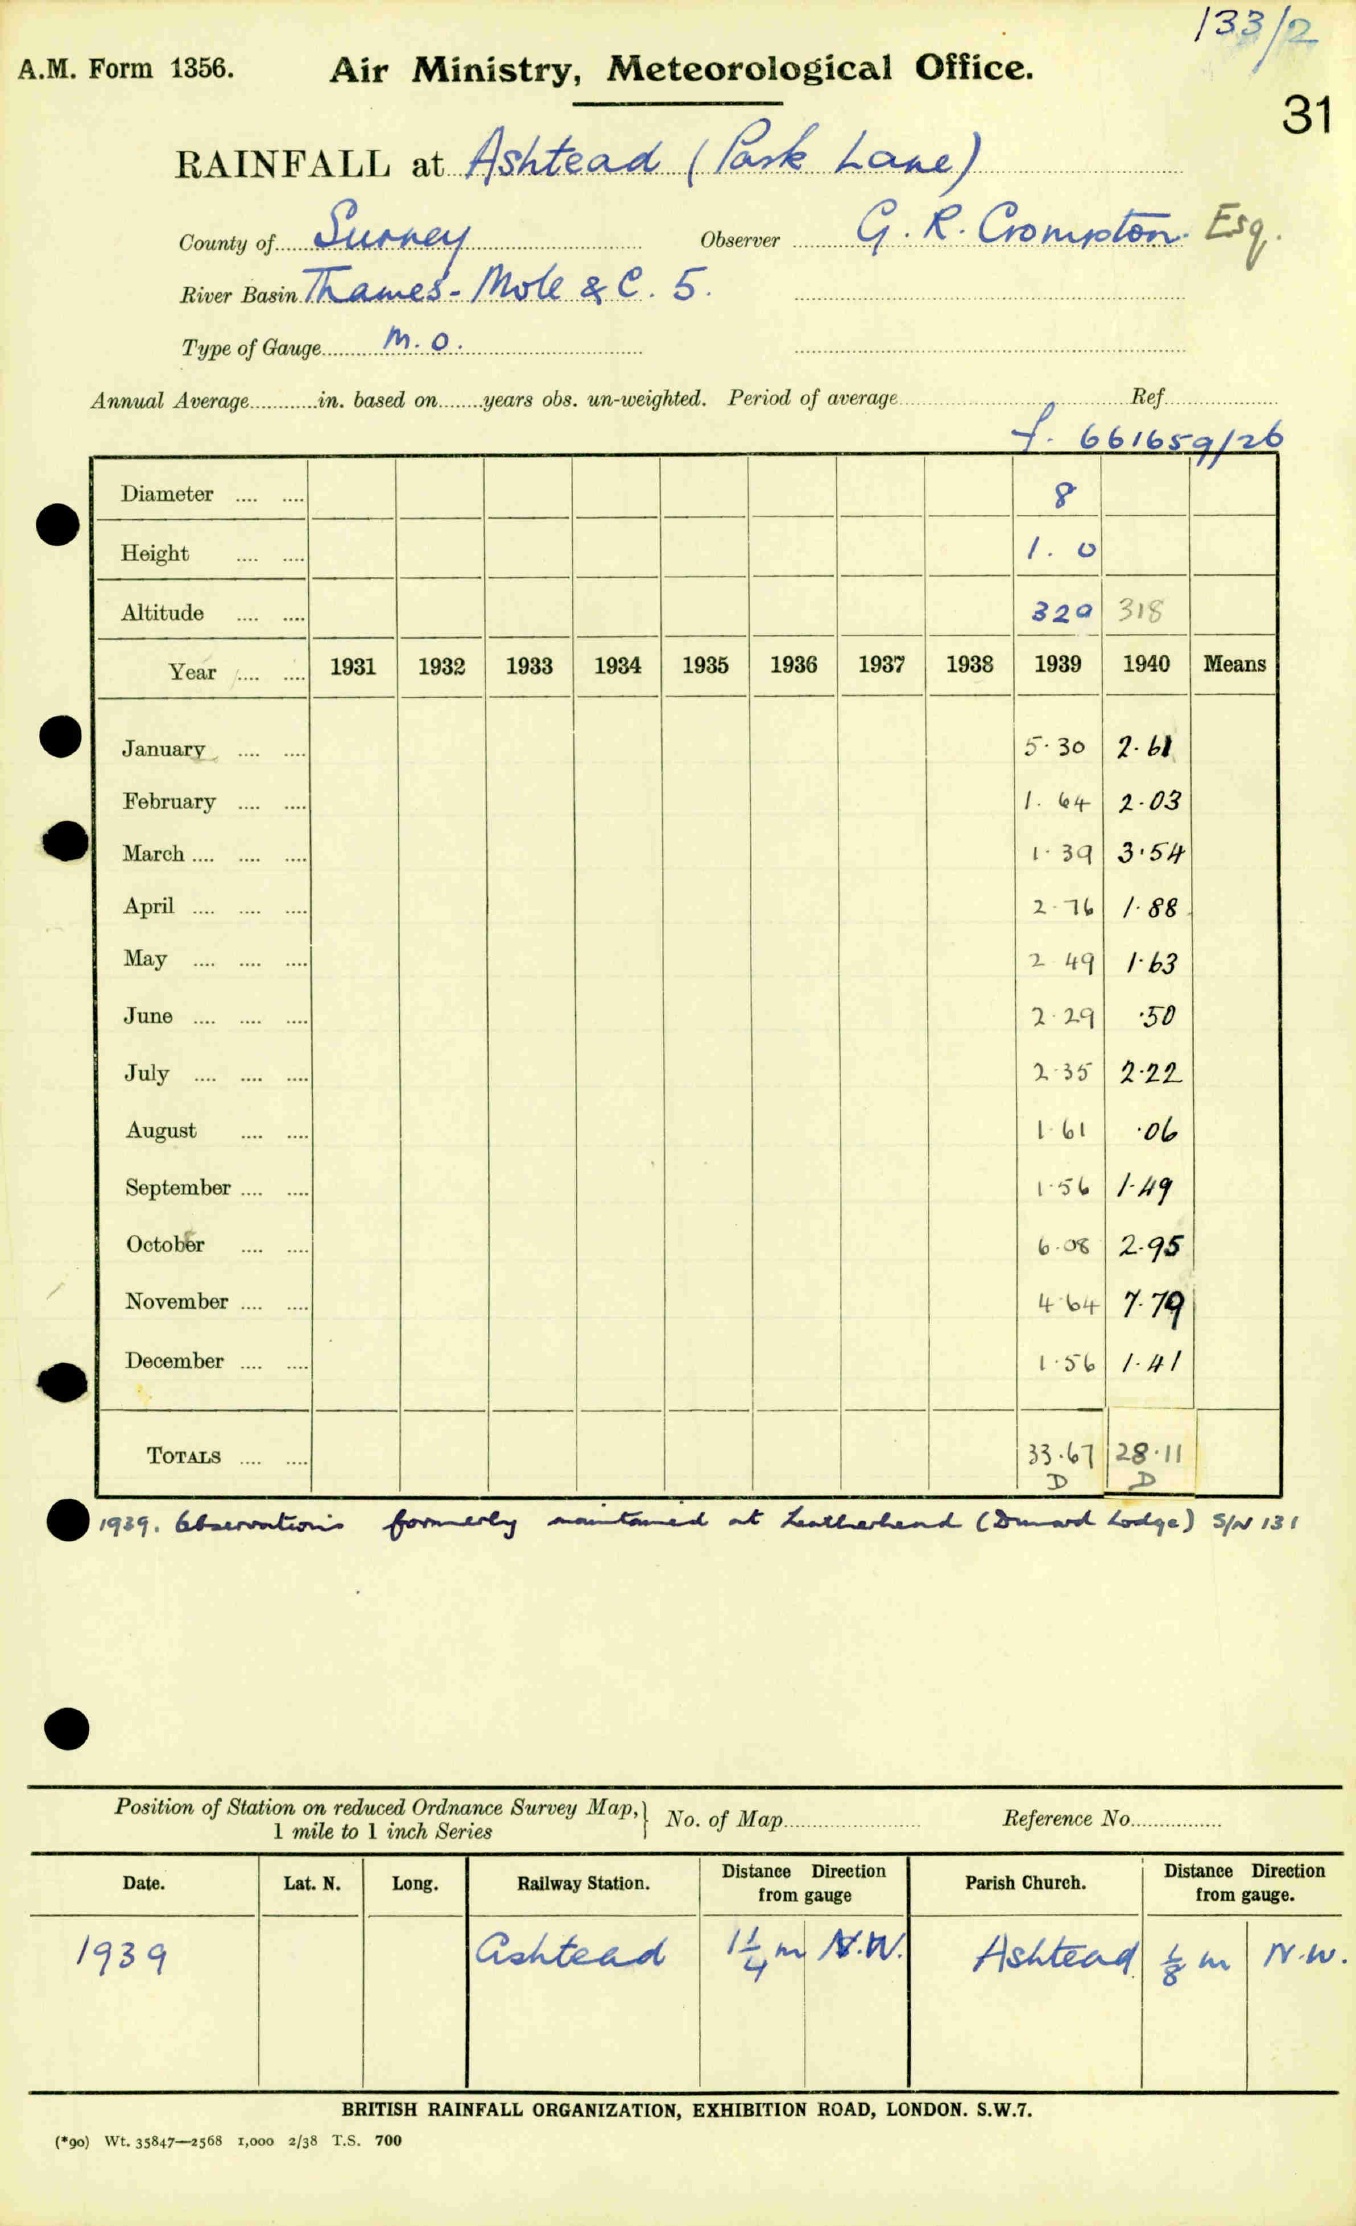 133/2
A.M. Form 1356. Air Ministry, Meteorological Office.
31
RAINFALL at Ashtead (Park Lane)
County of Surrey Observer G. R. Crompton. Esq.
River Basin Thames - Mole & C. 5.
Type of Gauge M.O.
Annual Average in. based on years obs. un-weighted. Period of average Ref
f. 661659/26
Diameter .... .... 8
Height .... .... 1. 0
Altitude .... .... 320 318
Year .... .... 1931 1932 1933 1934 1935 1936 1937 1938 1939 1940 Means
January .... .... 5.30 2.61
February .... .... 1.64 2.03
March .... .... .... 1.39 3.54
April .... .... .... 2.76 1.88
May .... .... .... 2 49 1.63
June .... .... .... 2.29 .50
July .... .... .... 2.35 2.22
August .... .... 1.61 .06
September .... .... 1.56 1.49
October .... .... 6.08 2.95
November .... .... 4.64 7.79
December .... .... 1.56 1.41
TOTALS .... .... 33.67 28.11
D D
1939. Observations formerly maintained at Leatherhead (Lodge) S/N 131
Position of Station on reduced Ordnance Survey Map, 1 mile to 1 inch Series No. of Map Reference No.
Date. Lat. N. Long. Railway Station. Distance Direction from gauge Parish Church. Distance Direction from gauge.
1939 Ashtead 1 1/4 m N.W. Ashtead 1/8 m N.W.
BRITISH RAINFALL ORGANIZATION, EXHIBITION ROAD, LONDON. S.W.7.
(*90) Wt. 35847—2568 1,000 2/38 T.S. 700